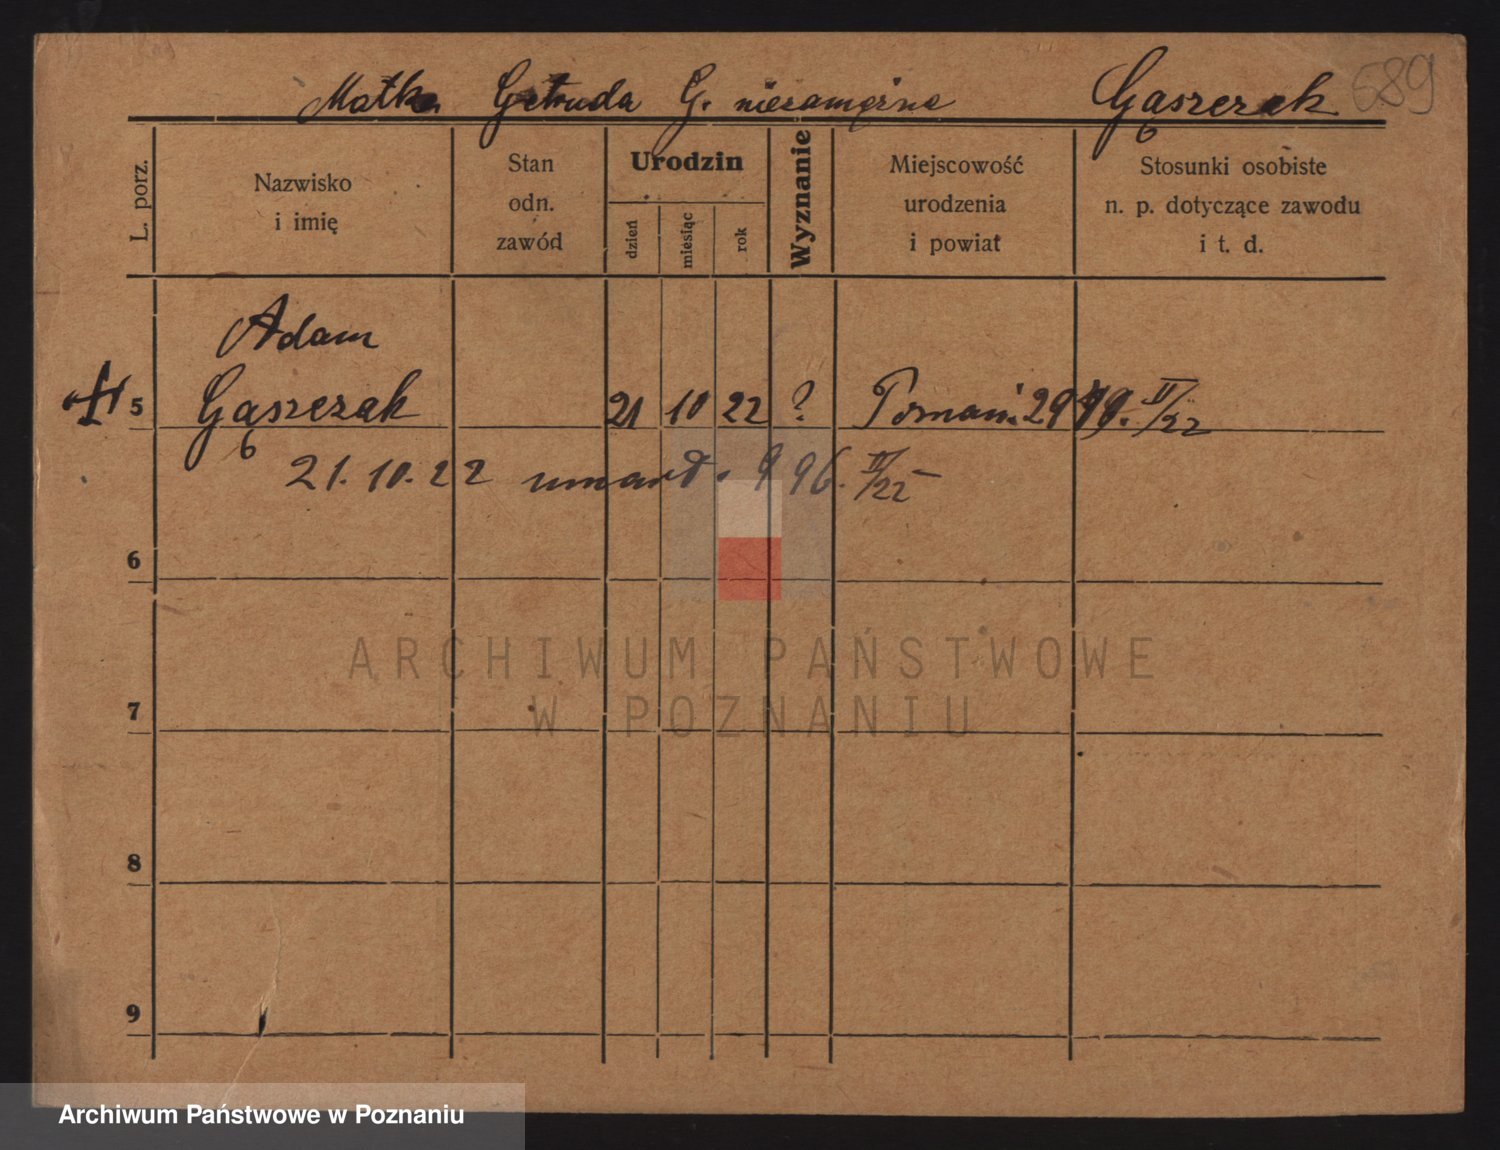 Matka Getruda G. niezamężna Gąszczak 689
L. porz.
Nazwisko i imię
Stan odn. zawód
Urodzin
dzień miesiąc rok
Wyznanie
Miejscowość urodzenia i powiat
Stosunki osobiste n. p. dotyczące zawodu i t. d.
Adam
5 Gąszczak 21 10 22 ? Poznań II/22
21.10.22 umarł. 996. II/22
6
7
8
9
ARCHIWUM PAŃSTWOWE
W POZNANIU
Archiwum Państwowe w Poznaniu